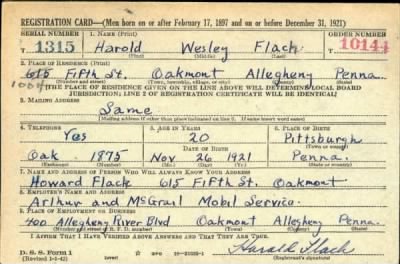 REGISTRATION CARD—(Men born on or after February 17, 1897 and on or before December 31, 1921)
SERIAL NUMBER 1. NAME (Print) ORDER NUMBER
T 1315 Harold Wesley Flach 10144
(First) (Middle) (Last)
2. PLACE OF RESIDENCE (Print)
615 Fifth St. Oakmont Allegheny Penna.
(Number and street) (Town, township, village, or city) (County) (State)
[THE PLACE OF RESIDENCE GIVEN ON THE LINE ABOVE WILL DETERMINE LOCAL BOARD
JURISDICTION; LINE 2 OF REGISTRATION CERTIFICATE WILL BE IDENTICAL]
3. MAILING ADDRESS
Same
[Mailing address if other than place indicated on line 2. If same insert word same]
4. TELEPHONE 5. AGE IN YEARS 6. PLACE OF BIRTH
Yes 20 Pittsburgh
DATE OF BIRTH (Town or county)
Oak. 1875 Nov 26 1921 Penna.
(Exchange) (Number) (Mo.) (Day) (Yr.) (State or country)
7. NAME AND ADDRESS OF PERSON WHO WILL ALWAYS KNOW YOUR ADDRESS
Howard Flack 615 Fifth St. Oakmont
8. EMPLOYER'S NAME AND ADDRESS
Arthur and McGrail Mobil Service.
9. PLACE OF EMPLOYMENT OR BUSINESS
400 Allegheny River Blvd Oakmont Allegheny Penna
(Number and street or R. F. D. number) (Town) (County) (State)
I AFFIRM THAT I HAVE VERIFIED ABOVE ANSWERS AND THAT THEY ARE TRUE.
D. S. S. Form 1
(Revised 1-1-42) (over) Harold Flach
(Registrant's signature)